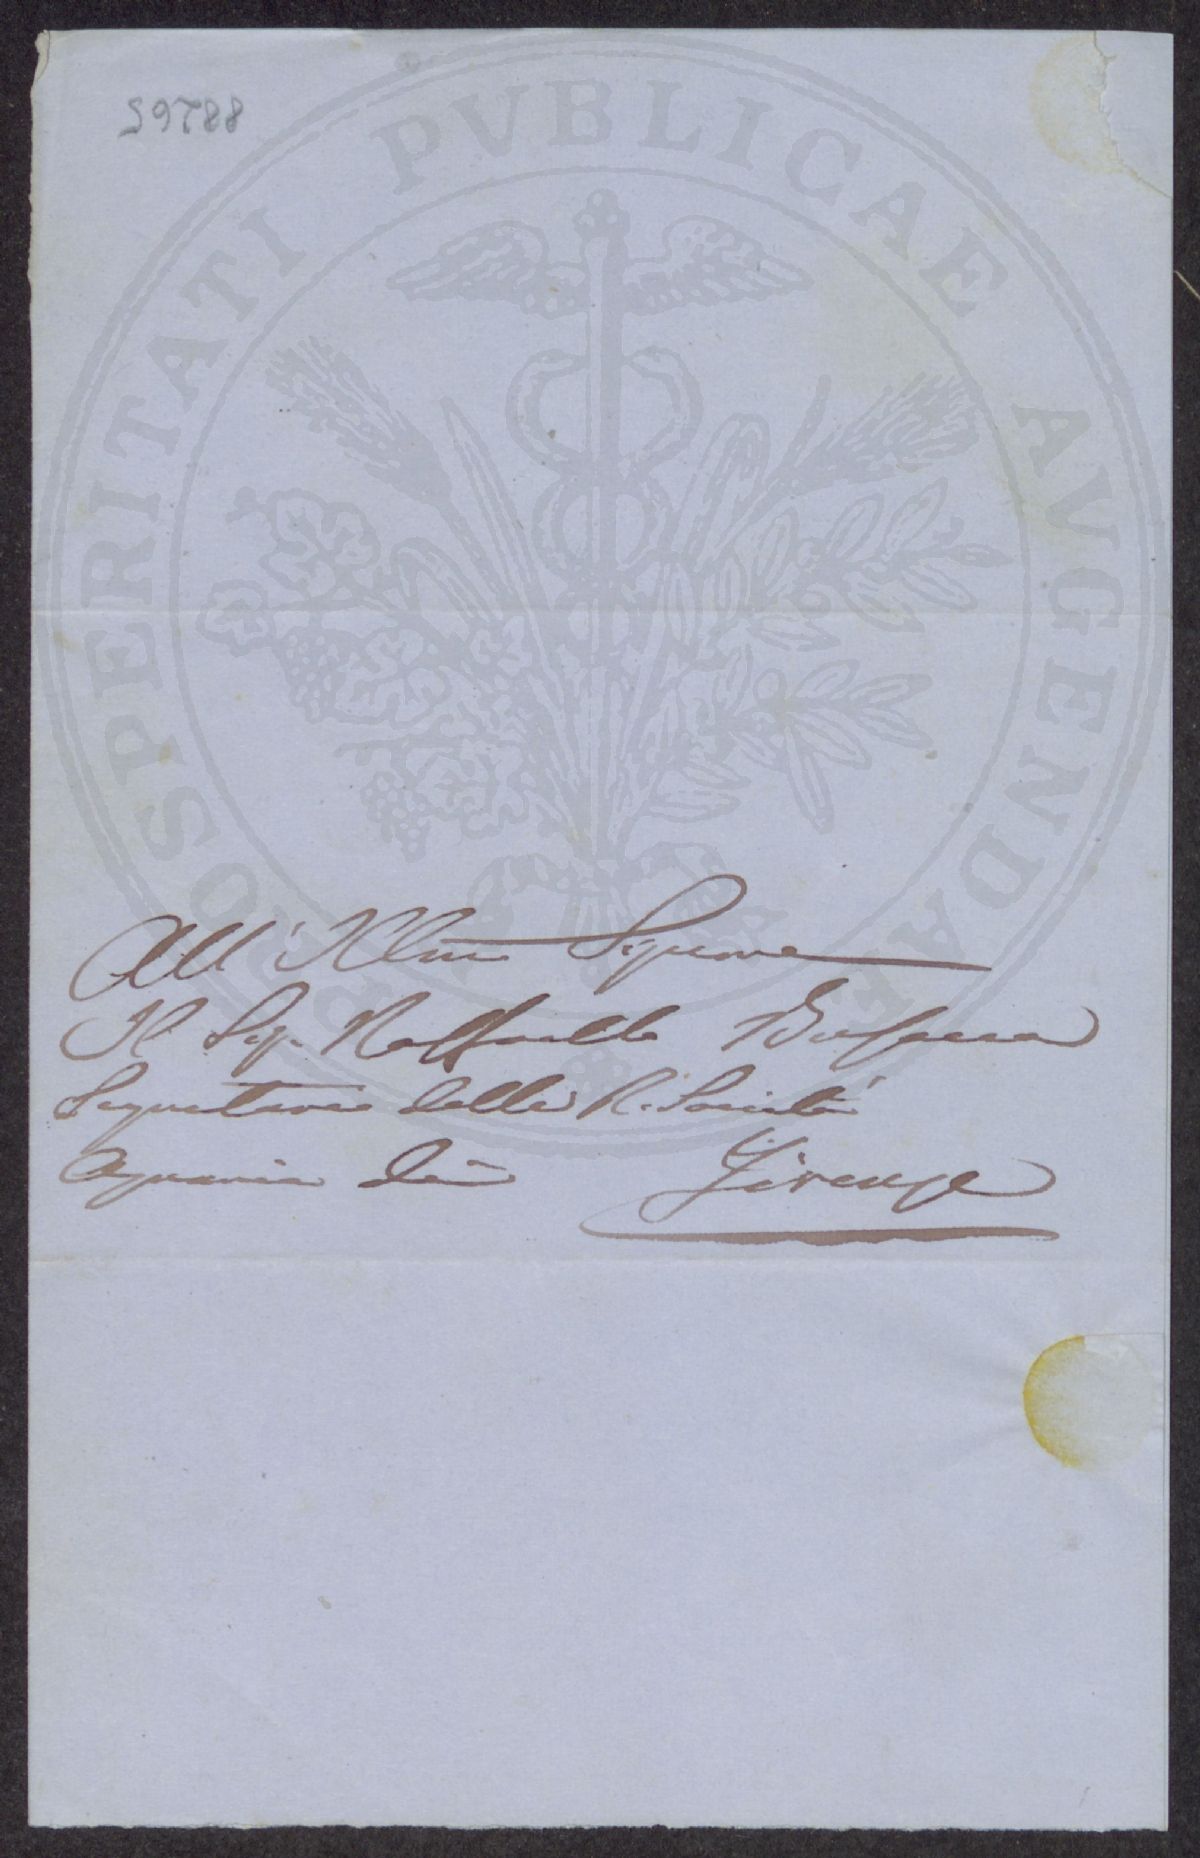 59788
PROSPERITATI PVBLICAE AVGENDAE
All' Illmo Signore
Il Sig. Raffaello Busacca
Segretario della R. Società
Agraria di Firenze